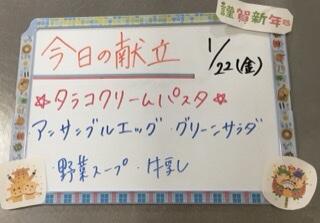 謹賀新年
今日の献立 1/22(金)
☆タラコクリームパスタ☆
・アンサンブルエッグ・グリーンサラダ
・野菜スープ ・牛乳